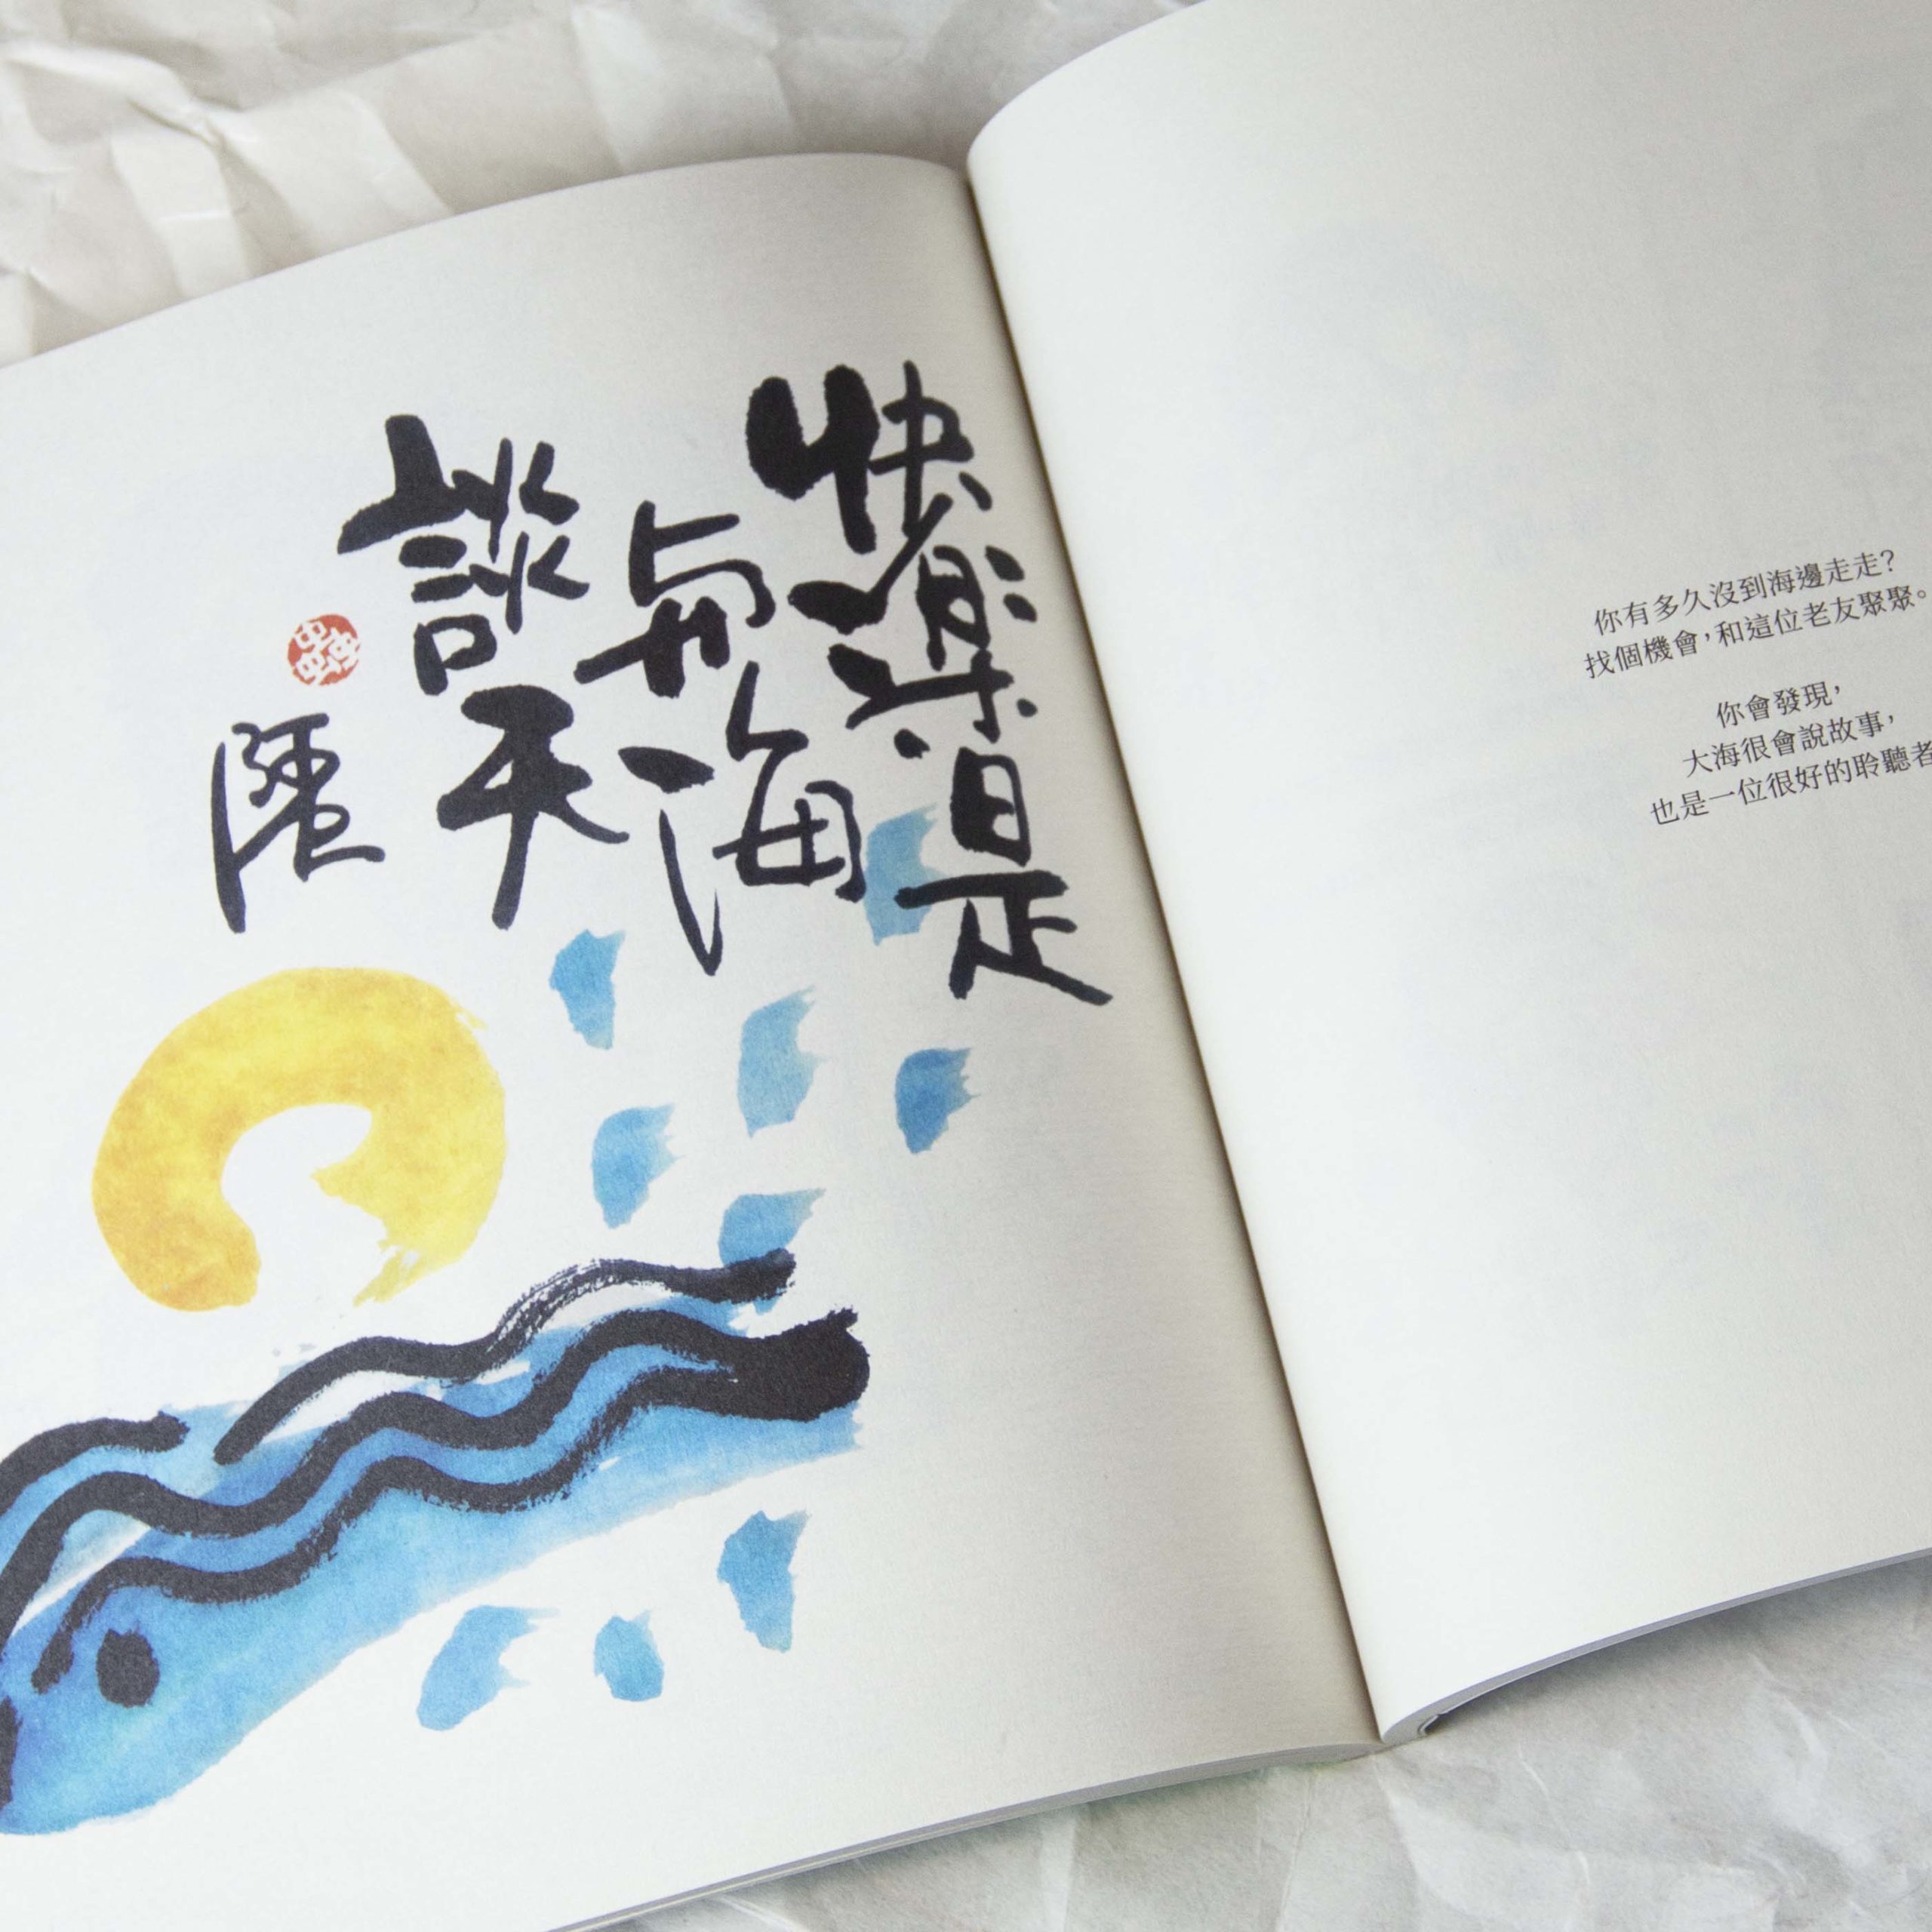 快樂是
與海
談天
你有多久沒到海邊走走?
找個機會,和這位老友聚聚。
你會發現,
大海很會說故事,
也是一位很好的聆聽者